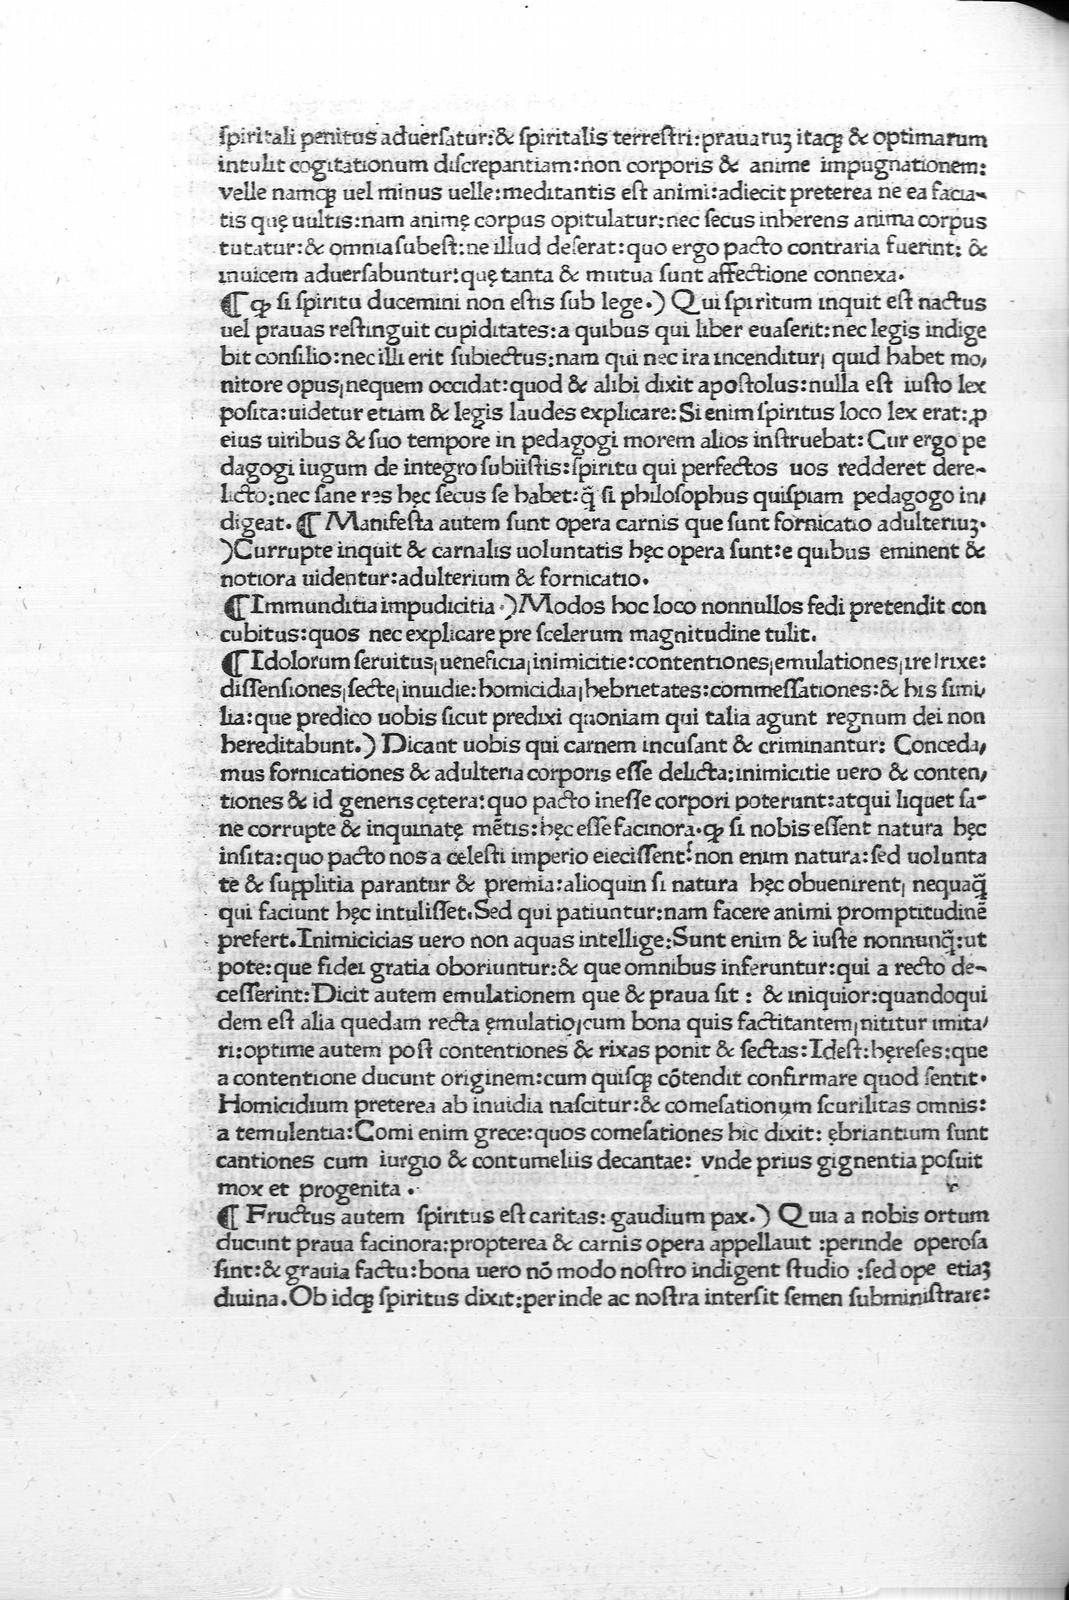 ſpiritali penitus aduerſatur:& ſpiritalis terreſtri:prauaruꝫ itaqꝫ & optimarum
intulit cogitationum diſcrepantiam:non corporis & anime impugnationem:
velle namqꝫ uel minus uelle:meditantis eſt animi:adiecit preterea ne ea facia-
tis quę uultis:nam animę corpus opitulatur:nec ſecus inherens anima corpus
tutatur:& omnia ſubeſt:ne illud deſerat:quo ergo pacto contraria fuerint: &
inuicem aduerſabuntur:quę tanta & mutua ſunt affectione connexa.
¶ qꝫ ſi ſpiritu ducemini non eſtis ſub lege.) Qui ſpiritum inquit eſt nactus
uel prauas reſtinguit cupiditates:a quibus qui liber euaſerit:nec legis indige
bit conſilio:nec illi erit ſubiectus:nam qui nec ira incenditur¡ quid habet mo/
nitore opus¡nequem occidat:quod & alibi dixit apoſtolus:nulla eſt iuſto lex
poſita:uidetur etiam & legis laudes explicare:Si enim ſpiritus loco lex erat:ꝓ
eius uiribus & ſuo tempore in pedagogi morem alios inſtruebat: Cur ergo pe
dagogi iugum de integro ſubiiſtis:ſpiritu qui perfectos uos redderet dere-
licto:nec ſane res hęc ſecus ſe habet:q̃ ſi philoſophus quiſpiam pedagogo in/
digeat. ¶ Manifeſta autem ſunt opera carnis que ſunt fornicatio adulteriuꝫ.
)Currupte inquit & carnalis uoluntatis hęc opera ſunt:e quibus eminent &
notiora uidentur:adulterium & fornicatio.
¶ Immunditia impudicitia .) Modos hoc loco nonnullos fedi pretendit con
cubitus:quos nec explicare pre ſcelerum magnitudine tulit.
¶ Idolorum ſeruitus¡ueneficia¡inimicitie:contentiones¡emulationes¡ire¡rixe:
diſſenſiones¡ſecte¡inuidie:homicidia¡hebrietates:commeſſationes:& his ſimi/
lia:que predico uobis ſicut predixi quoniam qui talia agunt regnum dei non
hereditabunt.) Dicant uobis qui carnem incuſant & criminantur: Conceda/
mus fornicationes & adulteria corporis eſſe delicta:inimicitie uero & conten/
tiones & id generis cętera:quo pacto ineſſe corpori poterunt:atqui liquet ſa-
ne corrupte & inquinatę mētis:hęc eſſe facinora.qꝫ ſi nobis eſſent natura hęc
inſita:quo pacto nos a celeſti imperio eieciſſent:non enim natura:ſed uolunta
te & ſupplitia parantur & premia:alioquin ſi natura hęc obuenirent¡ nequaq̃
qui faciunt hęc intuliſſet.Sed qui patiuntur:nam facere animi promptitudinē
prefert.Inimicicias uero non aquas intellige:Sunt enim & iuſte nonnunq̃:ut
pote:que fidei gratia oboriuntur:& que omnibus inferuntur:qui a recto de-
ceſſerint:Dicit autem emulationem que & praua ſit : & iniquior:quandoqui
dem eſt alia quedam recta ęmulatio¡cum bona quis factitantem¡nititur imita/
ri:optime autem poſt contentiones & rixas ponit & ſectas:Ideſt:hęreſes:que
a contentione ducunt originem:cum quiſqꝫ cōtendit confirmare quod ſentit.
Homicidium preterea ab inuidia naſcitur:& comeſationum ſcurilitas omnis:
a temulentia:Comi enim grece:quos comeſationes hic dixit: ębriantium ſunt
cantiones cum iurgio & contumeliis decantae: vnde prius gignentia poſuit
mox et progenita .
¶ Fructus autem ſpiritus eſt caritas: gaudium pax.) Quia a nobis ortum
ducunt praua facinora:propterea & carnis opera appellauit :perinde operoſa
ſint:& grauia factu:bona uero nō modo noſtro indigent ſtudio :ſed ope etiaꝫ
diuina.Ob idqꝫ ſpiritus dixit:perinde ac noſtra interſit ſemen ſubminiſtrare: